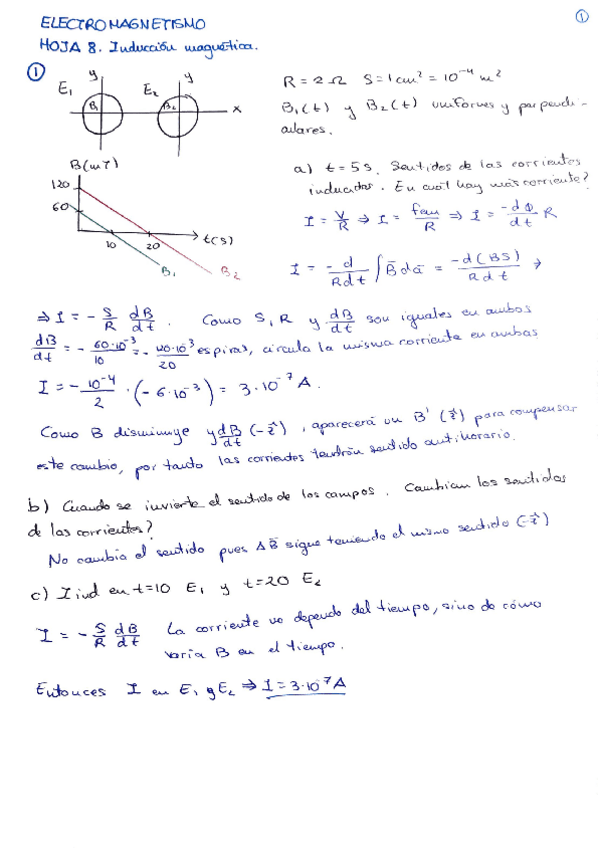 ①
ELECTROMAGNETISMO
HOJA 8. Inducción magnética.
①
E₁ y E₂ y
B₁ B₂ x
R = 2 Ω S = 1 cm² = 10⁻⁴ m²
B₁(t) y B₂(t) uniformes y perpendi-
culares.
B(mT)
120
60
10 20 t(s)
B₁ B₂
a) t = 5 s. Sentidos de las corrientes
inducidas. En cuál hay más corriente?
I = V/R ⇒ I = fem/R ⇒ I = -dΦ/dt R
I = -d/Rdt ∫ B̄ dā = -d(BS)/R dt →
⇒ I = - S/R dB/dt . Como S, R y dB/dt son iguales en ambos
dB/dt = - 60·10⁻³/10 = - 120·10⁻³/20 espiras, circula la misma corriente en ambas
I = - 10⁻⁴/2 · (-6·10⁻³) = 3·10⁻⁷ A.
Como B disminuye y dB/dt (-ẑ), aparecerá un B' (ẑ) para compensar
este cambio, por tanto las corrientes tendrán sentido antihorario.
b) Cuando se invierte el sentido de los campos. Cambian los sentidos
de las corrientes?
No cambia el sentido pues ΔB̄ sigue teniendo el mismo sentido (-ẑ)
c) I ind en t=10 E₁ y t=20 E₂
I = - S/R dB/dt La corriente no depende del tiempo, sino de cómo
varía B en el tiempo.
Entonces I en E₁ y E₂ ⇒ I = 3·10⁻⁷ A